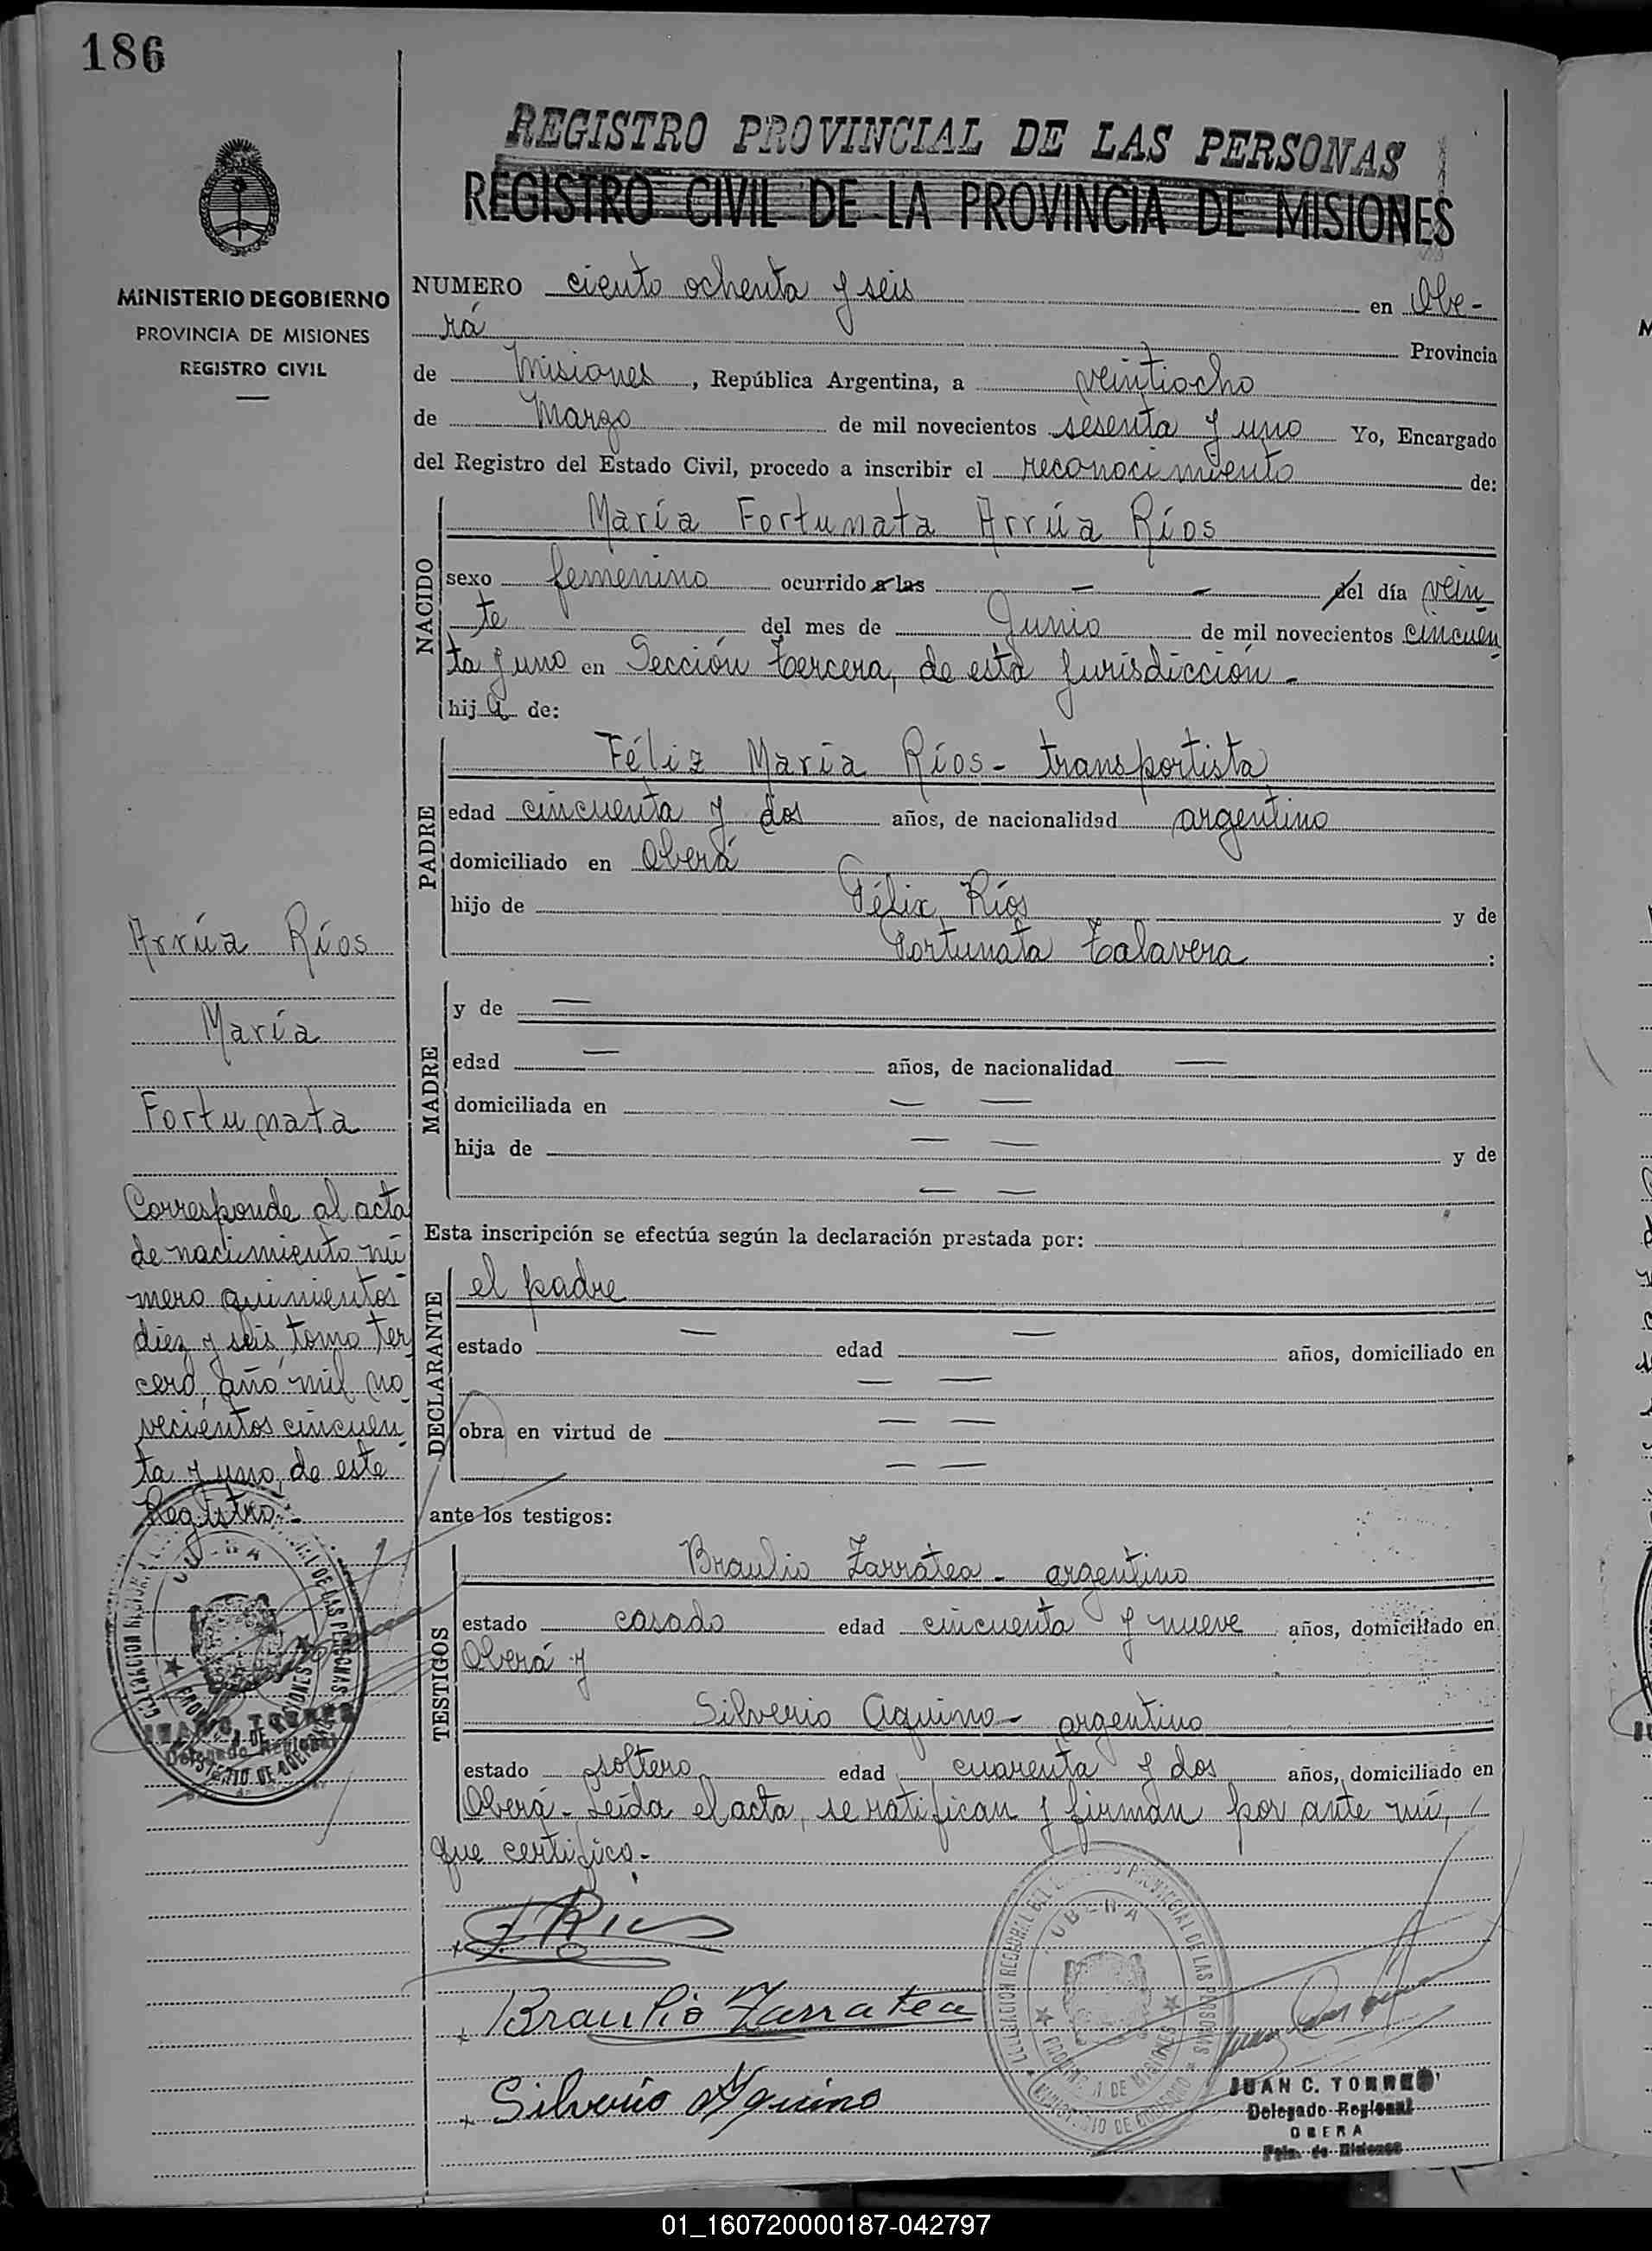 186
REGISTRO PROVINCIAL DE LAS PERSONAS
REGISTRO CIVIL DE LA PROVINCIA DE MISIONES
MINISTERIO DE GOBIERNO
PROVINCIA DE MISIONES
REGISTRO CIVIL
NUMERO ciento ochenta y seis en Obe-
rá Provincia
de Misiones, República Argentina, a veintiocho
de Marzo de mil novecientos sesenta y uno Yo, Encargado
del Registro del Estado Civil, procedo a inscribir el reconocimiento de:
NACIDO
María Fortunata Arrúa Ríos
sexo femenino ocurrido a las — — del día vein
te del mes de Junio de mil novecientos cincuen
ta y uno en Sección tercera, de esta jurisdicción.-
hija de:
PADRE
Féliz María Ríos - transportista
edad cincuenta y dos años, de nacionalidad argentino
domiciliado en Oberá
hijo de Félix Ríos y de
Fortunata Talavera :
MADRE
y de —
edad — años, de nacionalidad —
domiciliada en — —
hija de — — y de
— —
Esta inscripción se efectúa según la declaración prestada por:
DECLARANTE
el padre
estado — edad — años, domiciliado en
— —
obra en virtud de — —
— —
ante los testigos:
TESTIGOS
Braulio Zarratea - argentino
estado casado edad cincuenta y nueve años, domiciliado en
Oberá y
Silverio Aquino - argentino
estado soltero edad cuarenta y dos años, domiciliado en
Oberá - Leída el acta, se ratifican y firman por ante mí,
que certifico.-
Arrúa Ríos
María
Fortunata
Corresponde al acta
de nacimiento nú
mero quinientos
diez y seis, tomo ter
cero, año mil no
vecientos cincuen
ta y uno, de este
Registro.-
JUAN C. TORRES
Delegado Regional
F Rios
Braulio Zarratea
Silverio Aquino
OBERA
PROVINCIA DE MISIONES
MINISTERIO DE GOBIERNO
JUAN C. TORRES
Delegado Regional
OBERA
Pcia. de Misiones
01_160720000187-042797